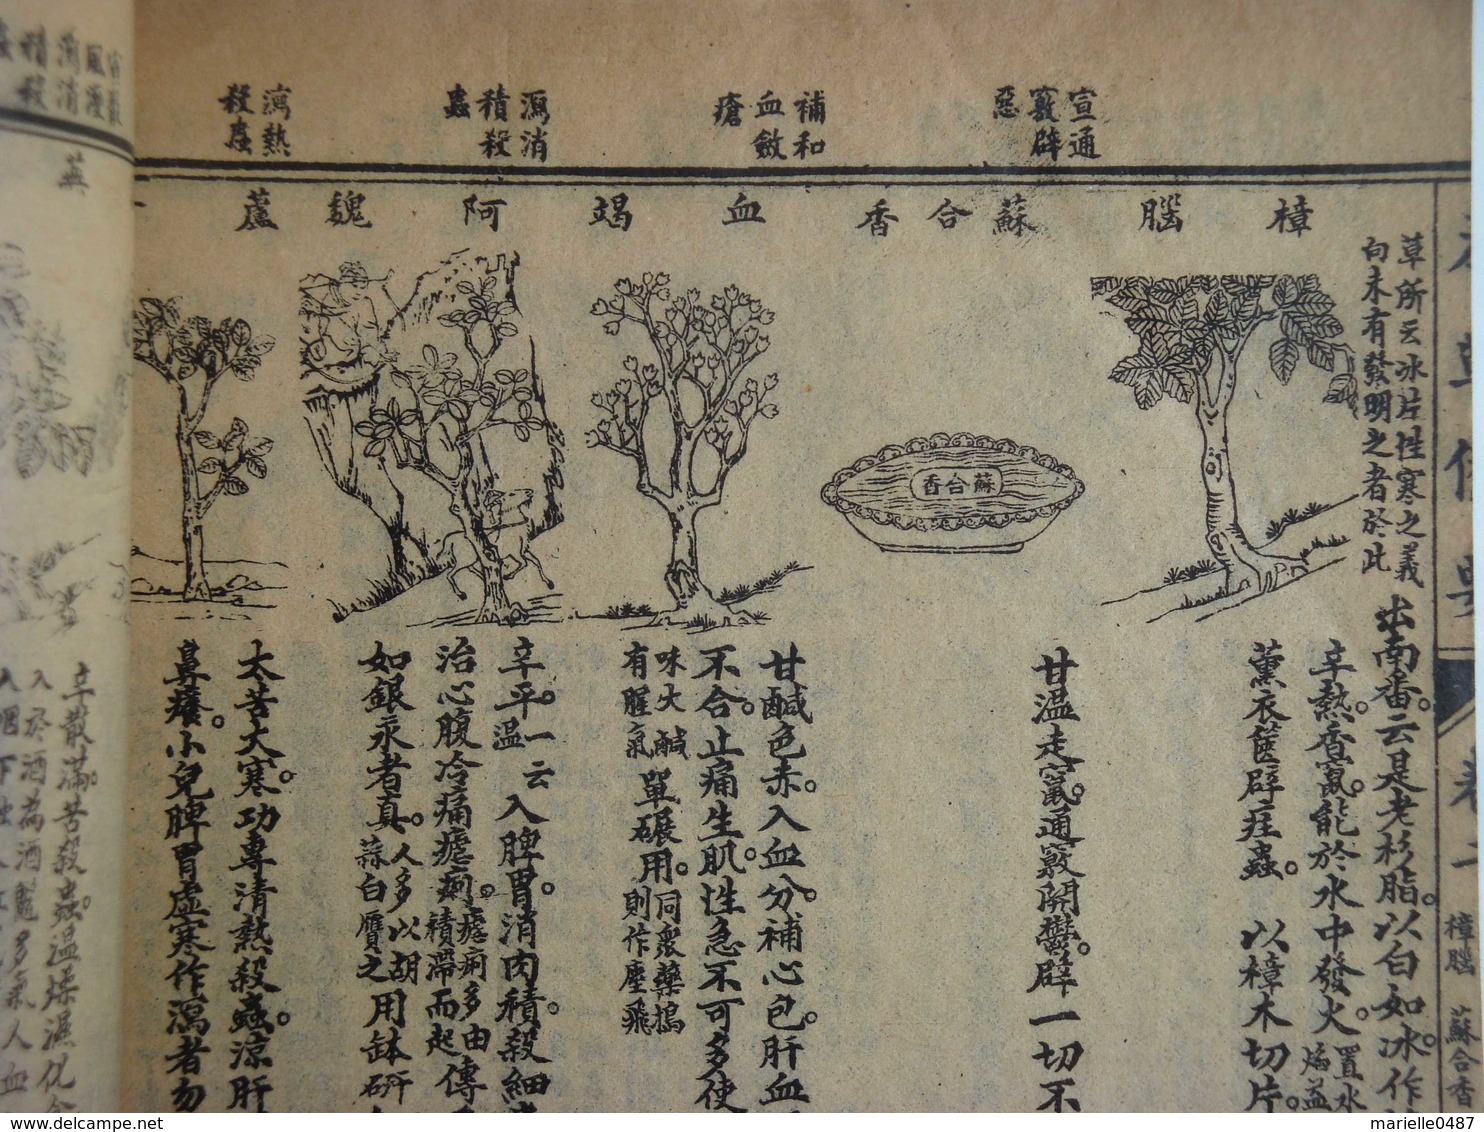 宣通
竅辟
惡
補和
血斂
瘡
瀉消
積殺
蟲
瀉熱
殺蟲
樟腦
蘇合香
血竭
阿魏
蘆
蘇合香
草所云冰片性寒之義
向未有發明之者於此
出南香。云是老杉脂。以白如冰。作
辛熱。香竄。能於水中發火。置水
焰益
薰衣篋。辟疰蟲。以樟木切片。
甘溫走竄。通竅開鬱。辟一切不
甘鹹色赤。入血分。補心包。肝血
不合。止痛生肌。性急不可多使
味大鹹
有腥氣
單碾用。
同衆藥搗
則作塵飛
辛平。
一云
溫
入脾胃。消肉積。殺細
治心腹冷痛瘧痢。
瘧痢多由
積滯而起
傳
如銀汞者真。
人多以胡
蒜白贋之
用缽研
大苦大寒。功專清熱殺蟲。涼肝
鼻癢。小兒脾胃虛寒作瀉者勿
卷
樟腦
蘇合香
蕪
辛散滿。苦殺蟲。溫燥濕化
delcampe.net
marielle0487